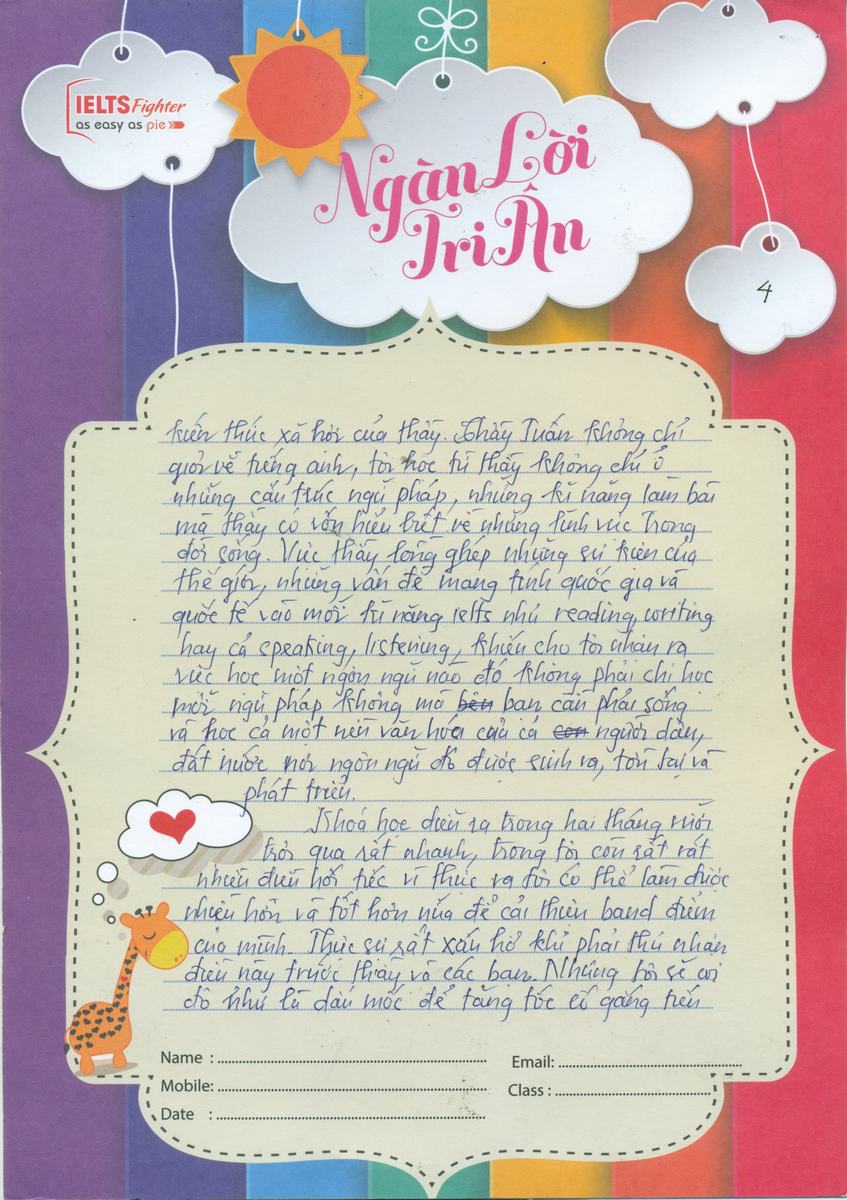 IELTS Fighter
as easy as pie
Ngàn Lời
Tri Ân
4
kiến thức xã hội của thầy. Thầy Tuấn không chỉ
giỏi về tiếng anh, tôi học từ thầy không chỉ ở
những cấu trúc ngữ pháp, những kĩ năng làm bài
mà thầy có vốn hiểu biết về những lĩnh vực trong
đời sống. Việc thầy lồng ghép những sự kiện của
thế giới, những vấn đề mang tính quốc gia và
quốc tế vào mỗi kĩ năng ielts như reading, writing
hay cả speaking, listening, khiến cho tôi nhận ra
việc học một ngôn ngữ nào đó không phải chỉ học
mỗi ngữ pháp không mà bạn cần phải sống
và học cả một nền văn hóa của cả người dân,
đất nước nơi ngôn ngữ đó được sinh ra, tồn tại và
phát triển.
Khoá học diễn ra trong hai tháng rưỡi
trôi qua rất nhanh, trong tôi còn rất rất
nhiều điều hối tiếc vì thực ra tôi có thể làm được
nhiều hơn và tốt hơn nữa để cải thiện band điểm
của mình. Thực sự rất xấu hổ khi phải thú nhận
điều này trước thầy và các bạn. Nhưng tôi sẽ coi
đó như là dấu mốc để tăng tốc cố gắng tiến
Name :
Email:
Mobile:
Class :
Date :